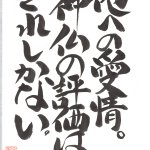 他への愛情。
神仏の評価は
それしかない。